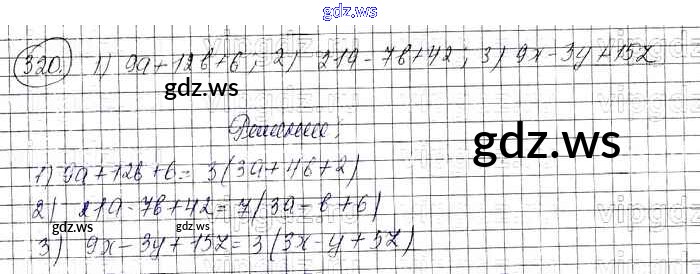 gdz.ws
320. 1) 9a+12b+6; 2) 21a-7b+42; 3) 9x-3y+15z
gdz.ws
Решение:
gdz.ws
1) 9a+12b+6= 3(3a+4b+2)
2) 21a-7b+42=7(3a-b+6)
gdz.ws
gdz.ws
3) 9x-3y+15z=3(3x-y+5z)